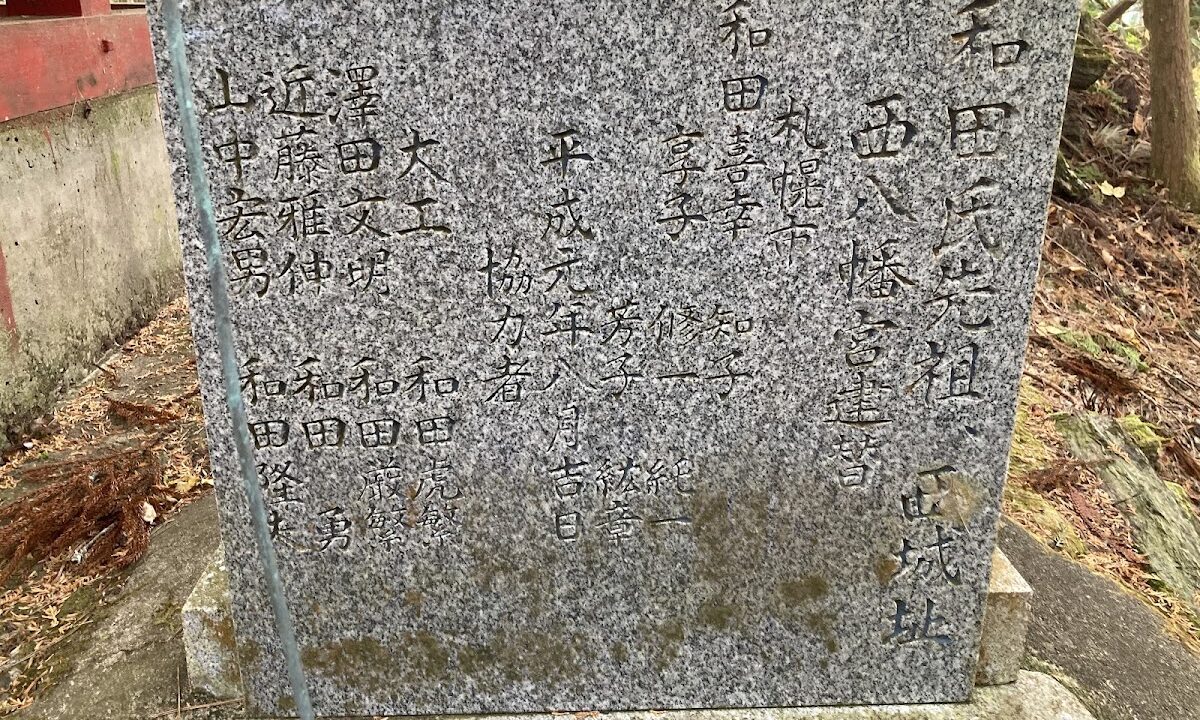 和田氏先祖、西城址
西八幡宮建替
札幌市
和田喜幸 知子
享子 修一 紀一
芳子 紘章
平成元年八月吉日
協力者
大工 和田虎繁
澤田文明 和田厳繁
近藤雅伸 和田勇
山中宏男 和田隆夫